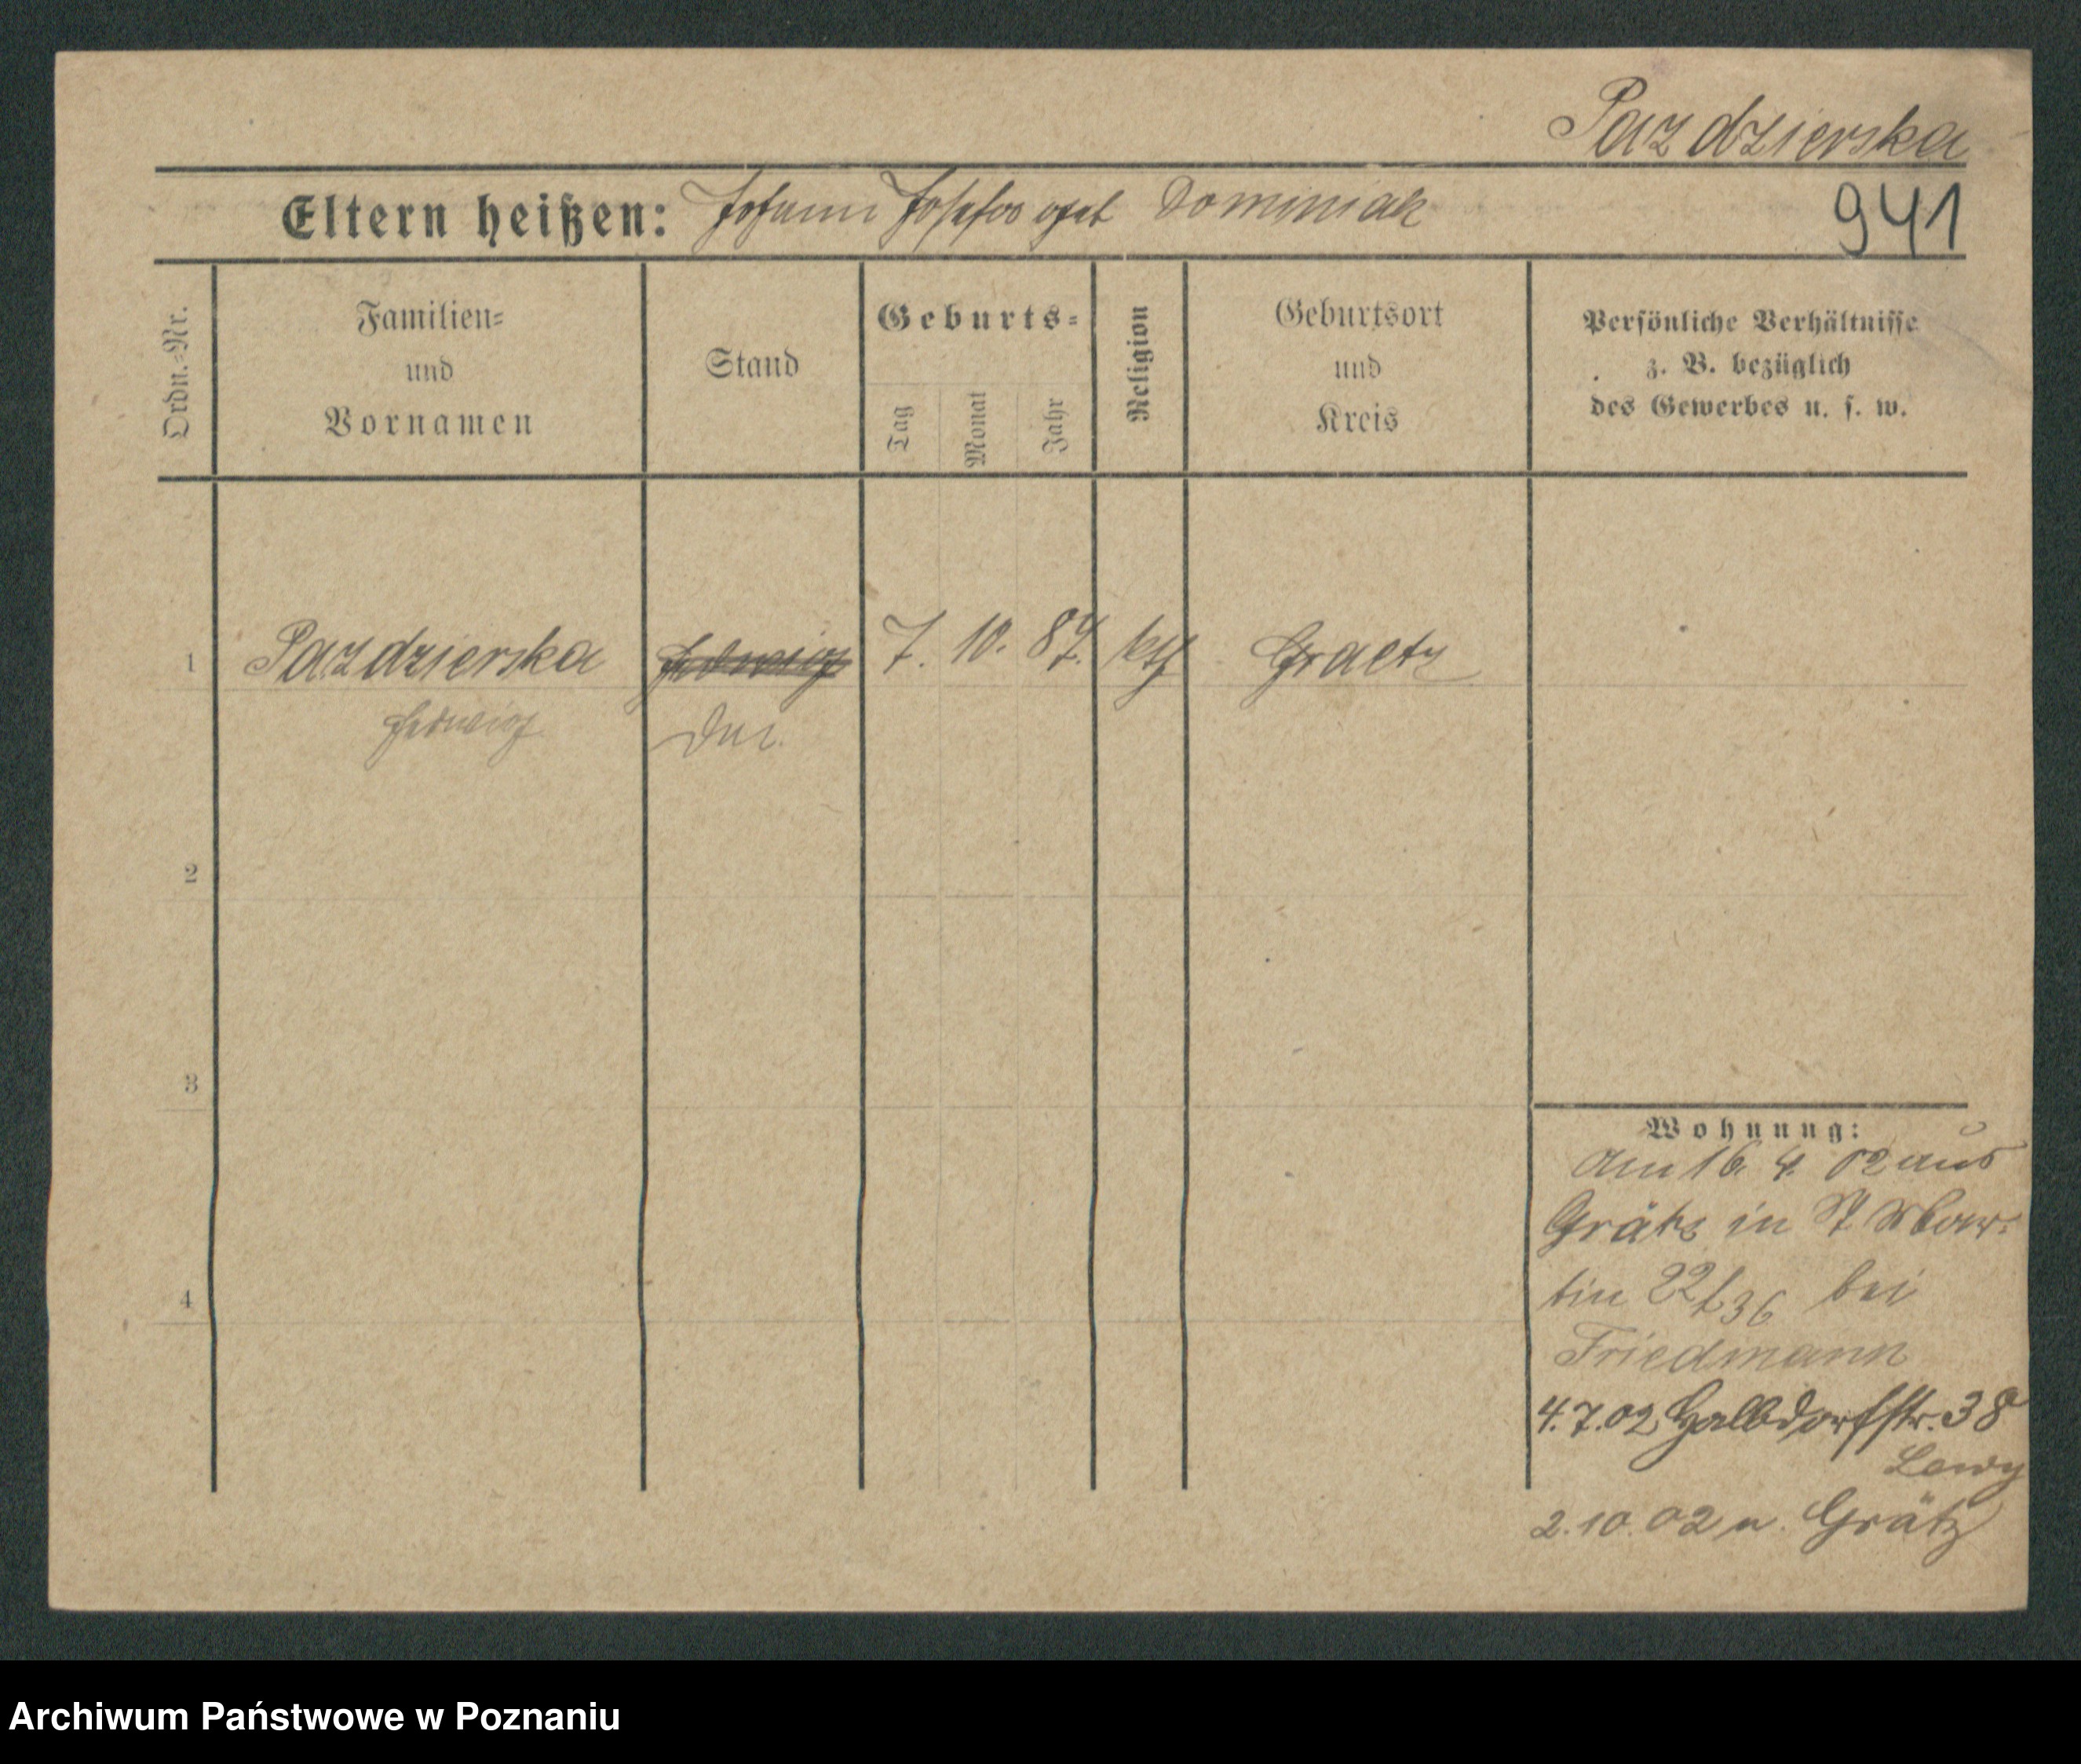 Pazdzierska
Eltern heißen: Johann Josefa geb Dominiak
941
Ordn.-Nr.
Familien-
und
Vornamen
Stand
Geburts-
Tag
Monat
Jahr
Religion
Geburtsort
und
Kreis
Persönliche Verhältnisse
z. B. bezüglich
des Gewerbes u. s. w.
1 Pazdzierska Hedwig 7. 10. 87. kth Graetz
Hedwig
2
3
4
Wohnung:
am 16. 4. 02 aus
Grätz in St Mar-
tin 22/ 36 bei
Friedmann
4.7.02 Halbdorfstr. 38
Lewy
2.10.02 n. Grätz
Archiwum Państwowe w Poznaniu